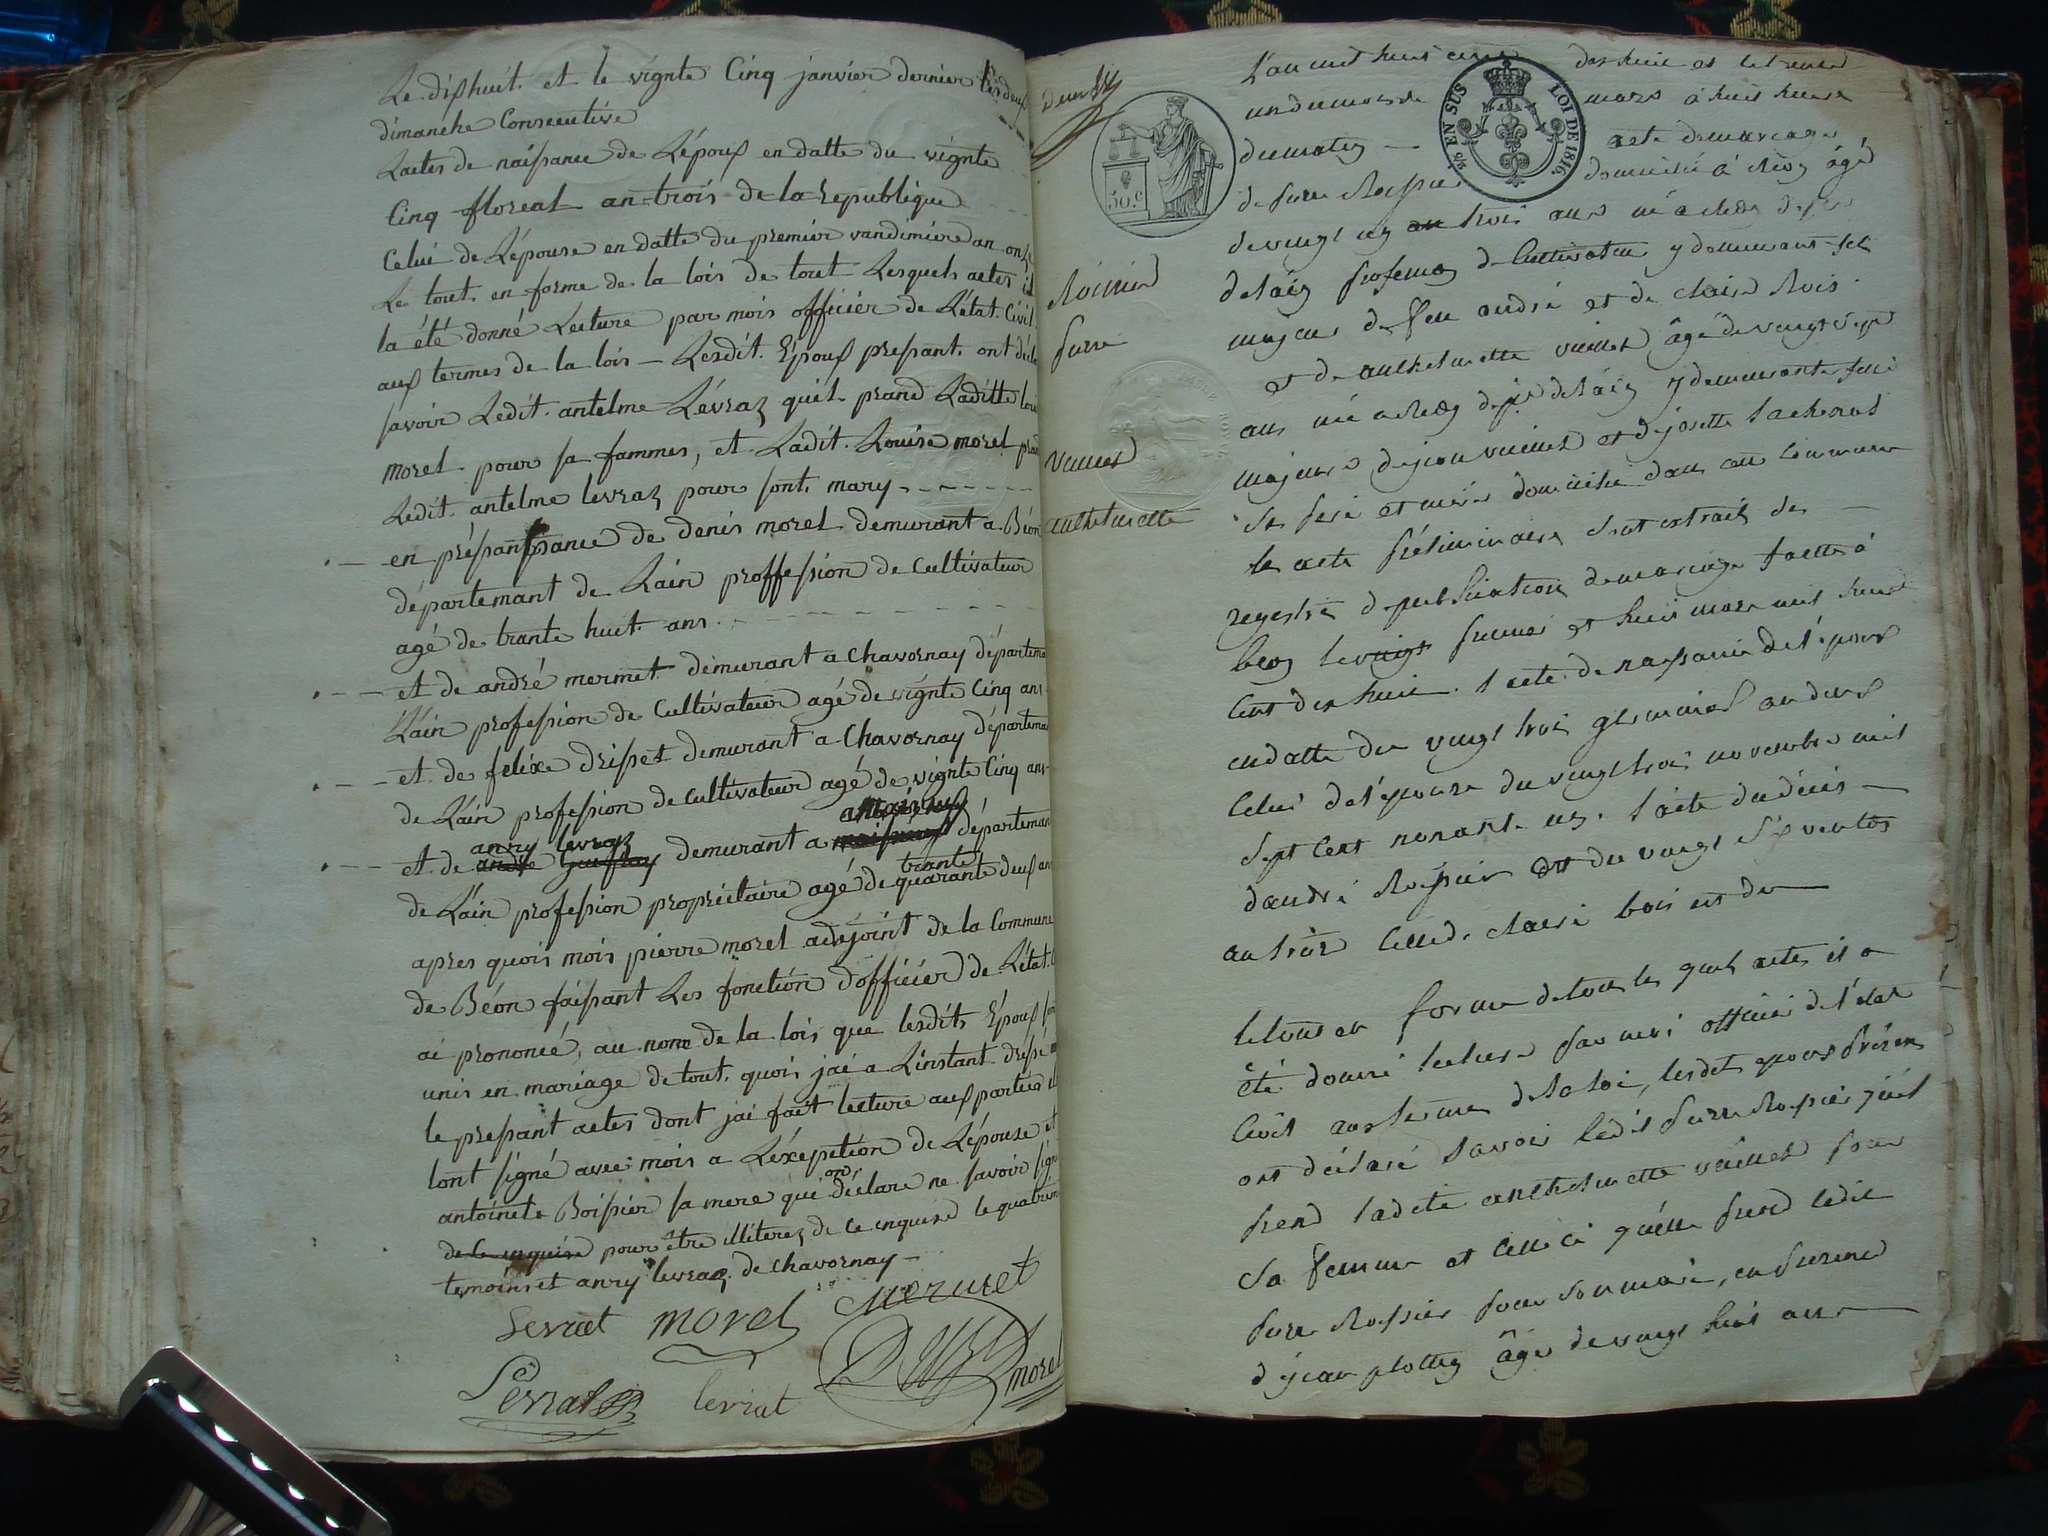 Le dishuit. et le vignte Cinq janvier dernier les deux
dimanche Consecutive
Lactes de naissance de Lépoux en datte du vignte
Cinq floreal an trois de la republique
Celui de Lépouse en datte du premier vandimiere an onze
Le tout. en forme de la lois de tout Lesquels actes il
la été donné Lecture par mois officier de Létat. Civil.
aux termes de la lois — Lesdit. Epoux pressant. ont décla
savoir Ledit. antelme Levraz quil prand Laditte loui
morel pour sa fammes, et Ladit. Louise morel prand
Ledit. antelme levraz pour sont. mary
en présance de denis morel demurant a Béon
départemant de Lain proffession de Cultivateur
agé de trante huit. ans
et de andré mermet demurant a Chavornay départema
Lain profession de Cultivateur agé de vignte Cinq ans
et de felixe drisset demurant a Chavornay départema
de Lain profession de Cultivateur agé de vignte Cinq ans
anry levraz
et de andre demurant a départemant
trante
de Lain profession proprietaire agé de quarante deux ans
apres quois mois pierre morel adsjoint de la Commune
de Béon faissant Les fonction dofficier de Létat.
ai prononcé, au nom de la lois que lesdits Epoux sont
unis en mariage de tout. quois jai a Linstant. dressé
le pressant actes dont jai fait lecture aux parties
lont signé avec mois a Léxeption de Lépouse et
ont
antoinete Boissier sa mere qui déclare ne savoir sign
pour être illiterez de ce enquised le quatrim
temoins et anry levraz de Chavornay
Levrat morel Mermet
Levrat levrat morel
Lan mil huit cent dix huit et le trente
un du mois de mars à huit heure
EN SUS LOI DE 1816
du matin — acte de mariage
50 c
de pierre Rossier domicilié à Béon âgé
de vingt trois ans né a Béon dept
Rossier
delain profession de Cultivateur y demeurant fils
majeur de feu andré et de claire Bois
pierre
et de anthelmette vuillet âgé de vingt sept
ans née a Béon dept delain y demeurante fille
vuillet
majeure de jean vuillet et de josette
anthelmette
Ses père et mère domicilié dans cette Commune
les acte préliminaire sont extrait des
registre de publication de mariage faitte à
Béon le vingt et huit mars mil huit
Cent dix huit. l'acte de naissance de l'époux
en datte du vingt trois germinal an deux
Celui de l'épouse du vingt trois novembre mil
Sept Cent nonante un. l'acte du décès
dandré Rossier est du vingt six ventos
an treize Celle de claire bois est du
le tout en forme de tous les quels actes il a
été donné lecture par moi officier de l'état
Civil aux termes de la loi, lesdits époux présen
ont déclaré savoir ledit pierre Rossier qu'il
prend ladite anthelmette vuillet pour
Sa femme et celle ci qu'elle prend ledit
pierre Rossier pour son mari, en présence
de jean plottoz âgé de vingt huit ans